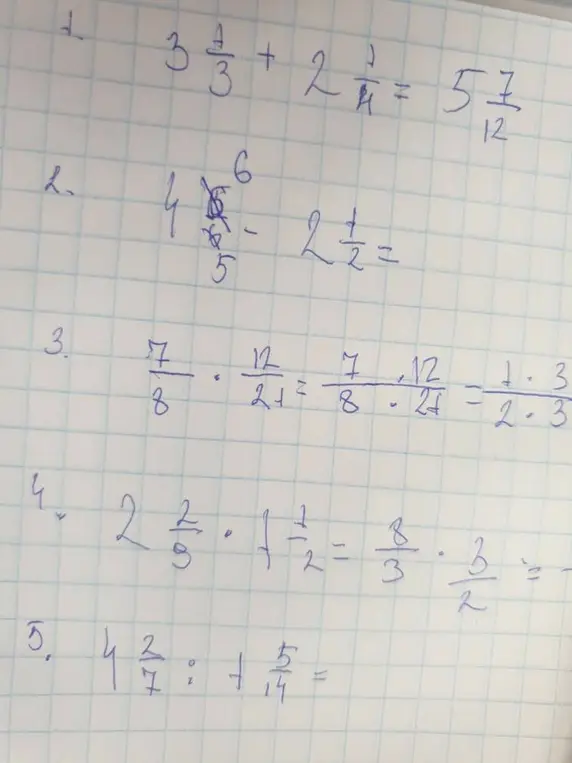 1. 3 1/3 + 2 1/4 = 5 7/12
2. 4 6/5 - 2 1/2 =
3. 7/8 · 12/21 = 7 · 12/8 · 21 = 1 · 3/2 · 3
4. 2 2/3 · 1 1/2 = 8/3 · 3/2 =
5. 4 2/7 : 1 5/14 =